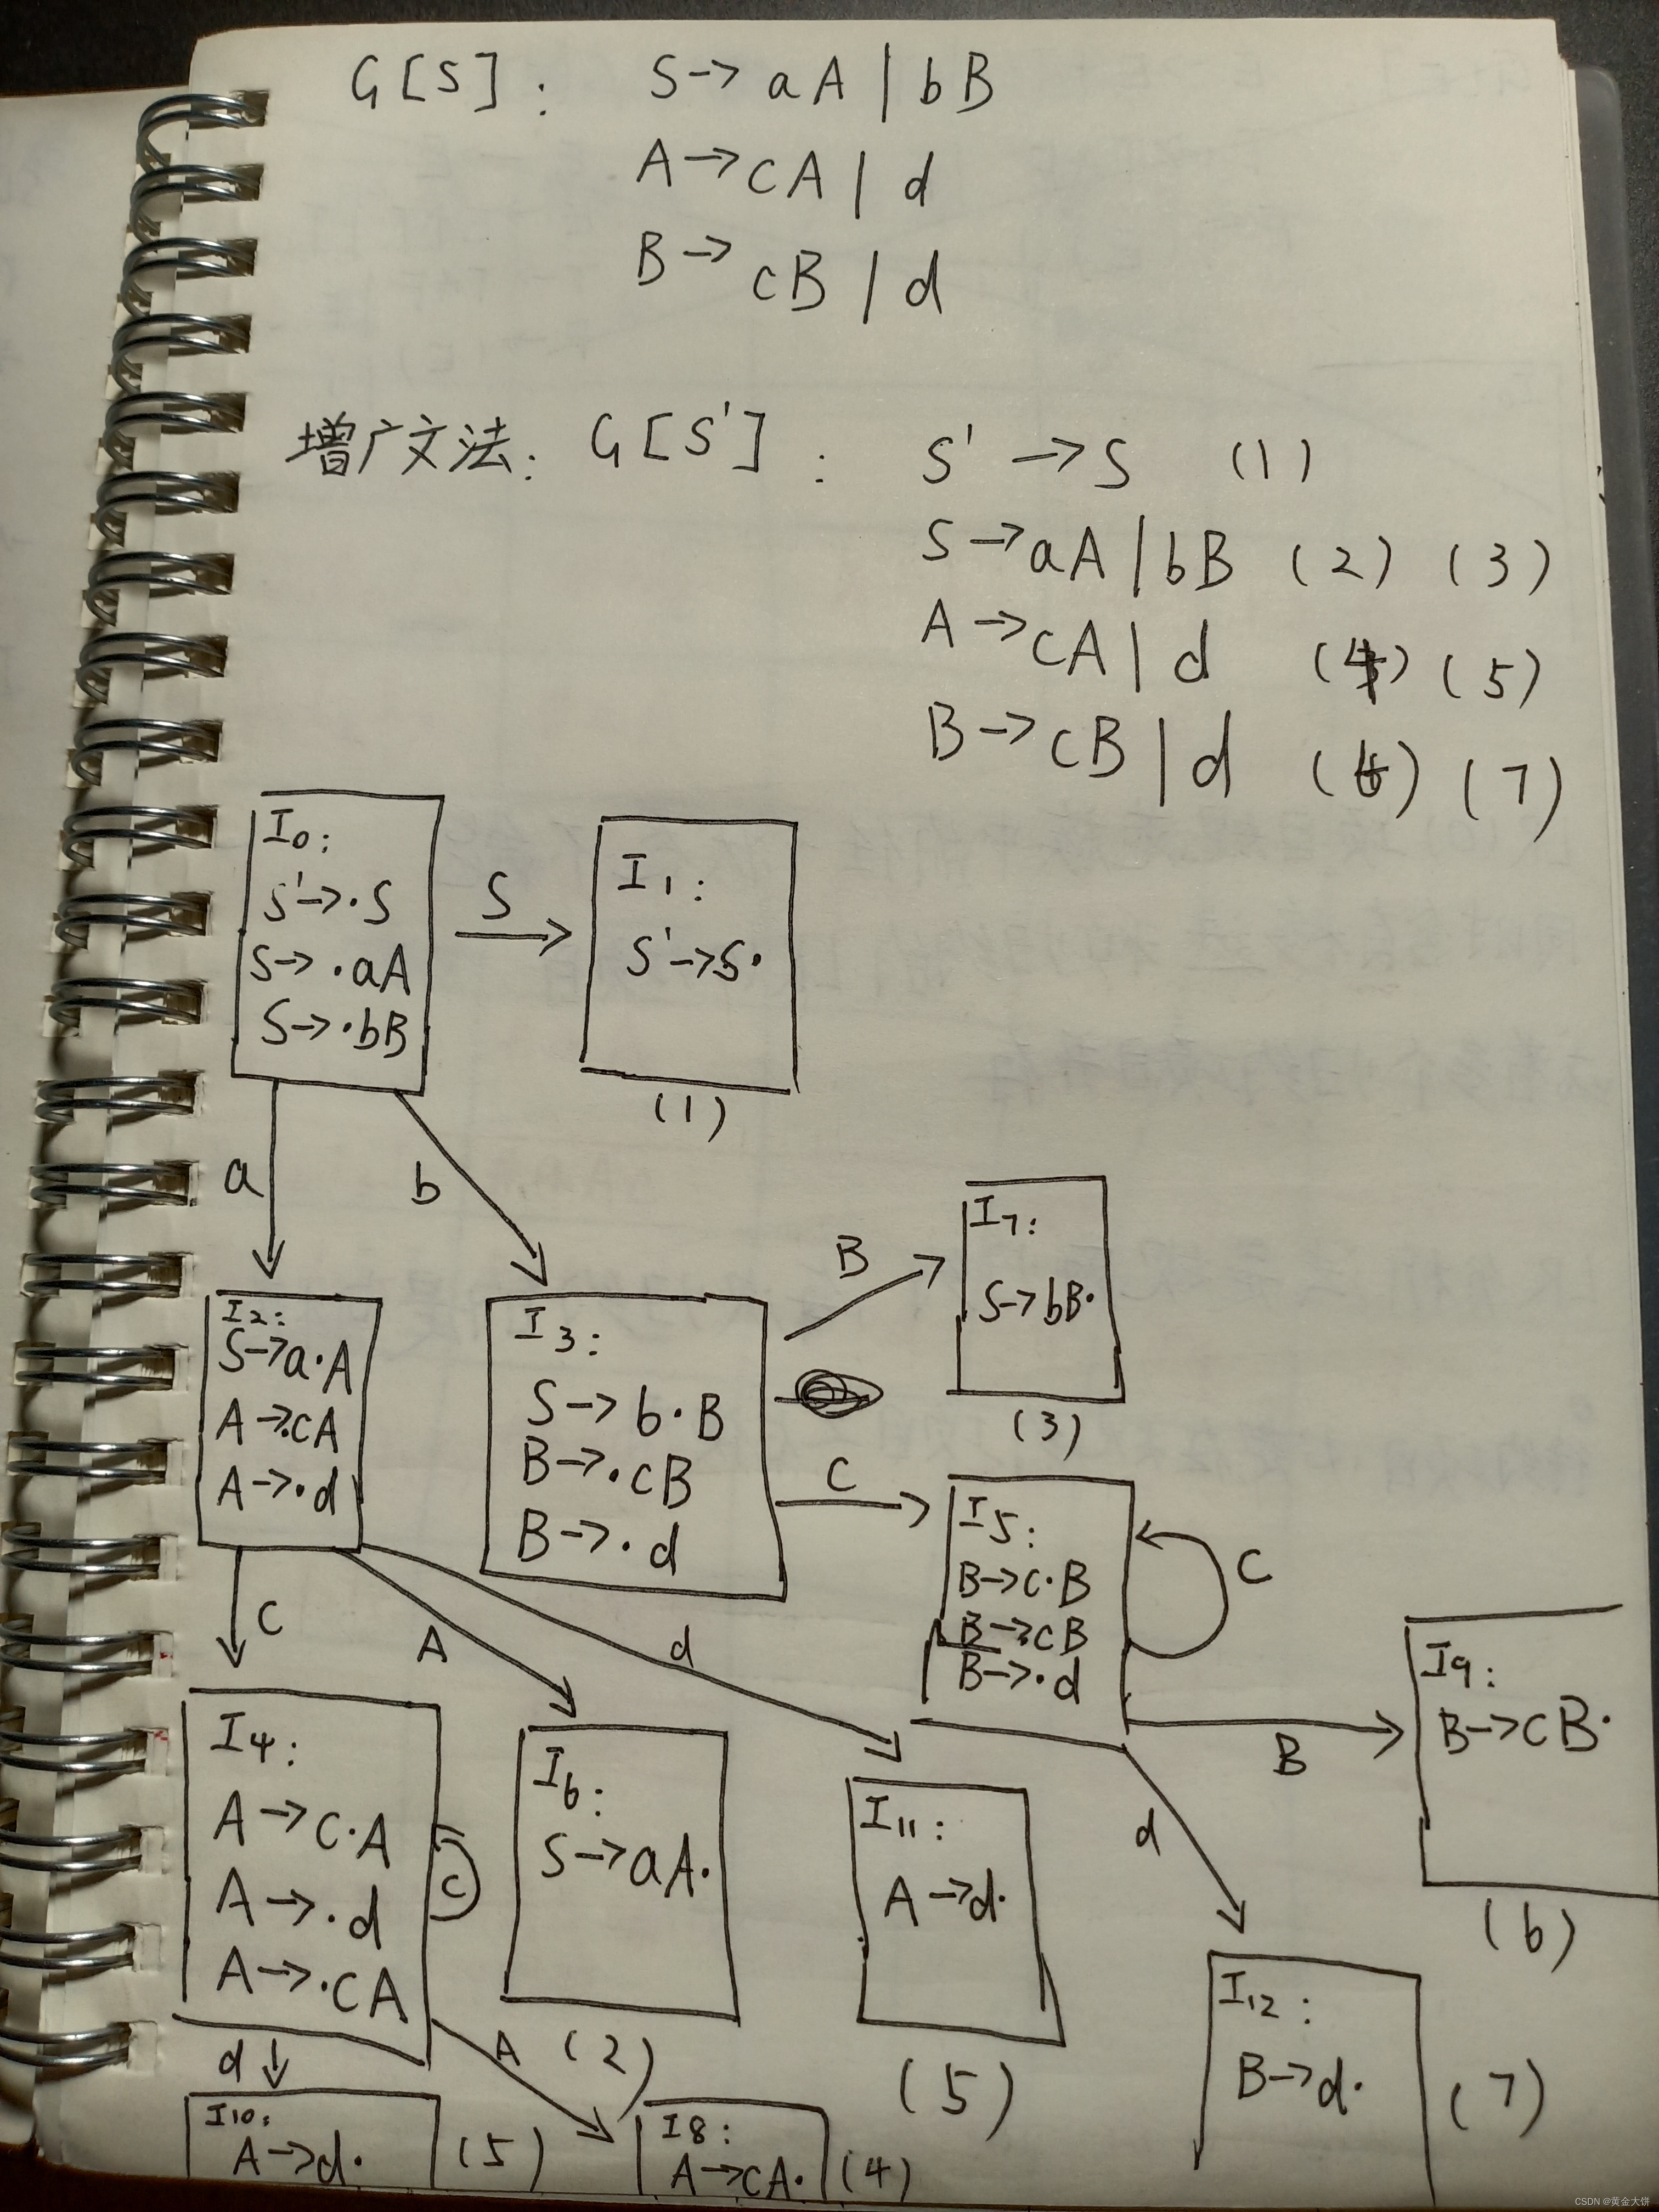 G[S]: S→aA|bB
A→cA|d
B→cB|d
增广文法: G[S']: S'→S (1)
S→aA|bB (2) (3)
A→cA|d (4) (5)
B→cB|d (6) (7)
I0:
S'→·S
S→·aA
S→·bB
S
I1:
S'→S·
(1)
a
b
I2:
S→a·A
A→·cA
A→·d
I3:
S→b·B
B→·cB
B→·d
B
I7:
S→bB·
(3)
c
I5:
B→c·B
B→·cB
B→·d
c
B
I9:
B→cB·
(6)
c
A
d
I4:
A→c·A
A→·d
A→·cA
c
I6:
S→aA·
(2)
I11:
A→d·
(5)
d
I12:
B→d·
(7)
d
I10:
A→d·
(5)
A
I8:
A→cA·
(4)
CSDN @黄金大饼